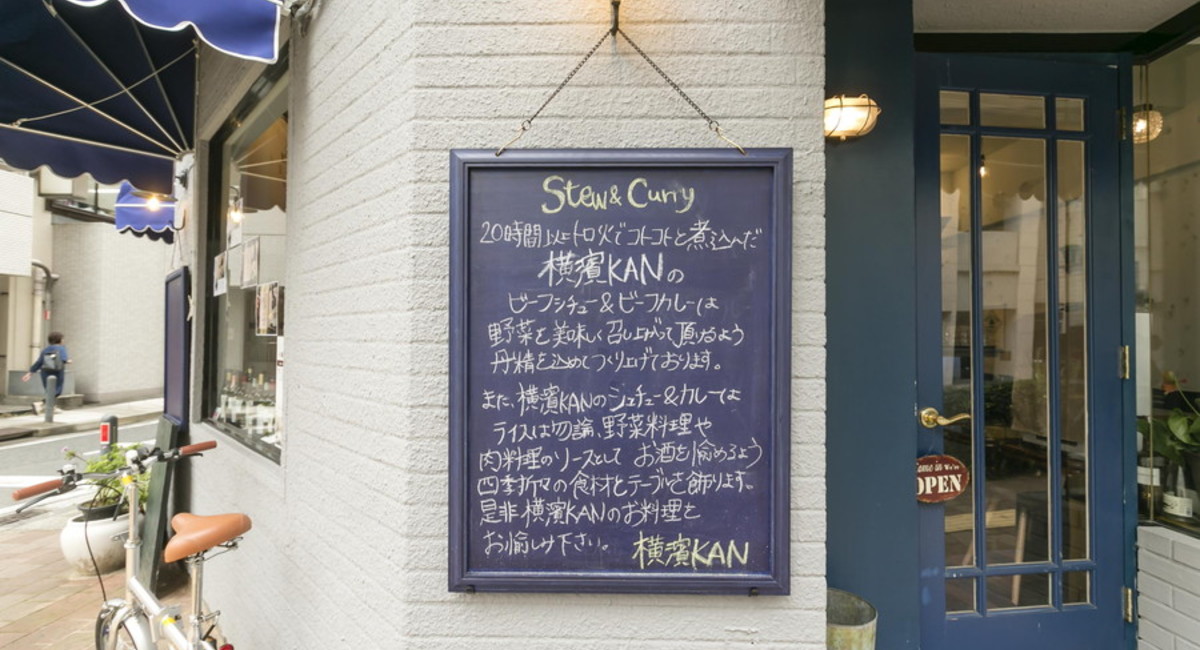 Stew & Curry
20時間以上トロ火でコトコトと煮込んだ
横濱KANの
ビーフシチュー&ビーフカレーは
野菜を美味しく召し上がって頂けるよう
丹精を込めてつくり上げております。
また、横濱KANのシチュー&カレーは
ライスは勿論、野菜料理や
肉料理のソースとして お酒を愉めるよう
四季折々の食材とテーブルを飾ります。
是非横濱KANのお料理を
お愉しみ下さい。 横濱KAN
Come in We're
OPEN